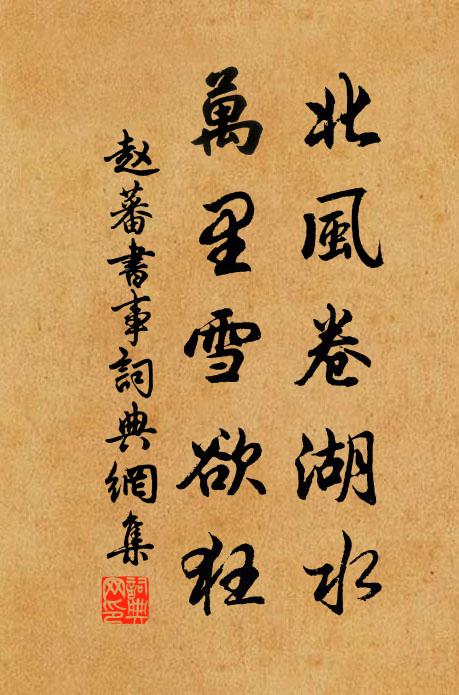 北風卷湖水
萬里雪欲狂
赵蕃書事詞典網集
詞典网印